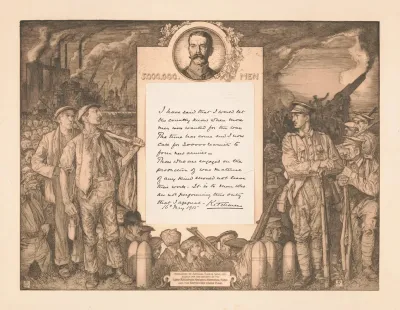 5,000,000. MEN
I have said that I would let
the country know when more
men were wanted for the war.
The time has come and I now
call for 300000 recruits to
form new armies.
Those who are engaged on the
production of war material
of any kind should not leave
their work. It is to men who
are not performing this duty
that I appeal. Kitchener
May 1915